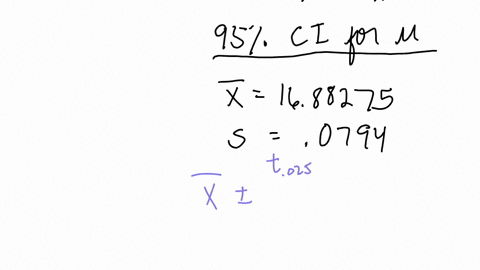 95% CI for μ
X̅ = 16.88275
s = .0794
t.025
X̅ ±